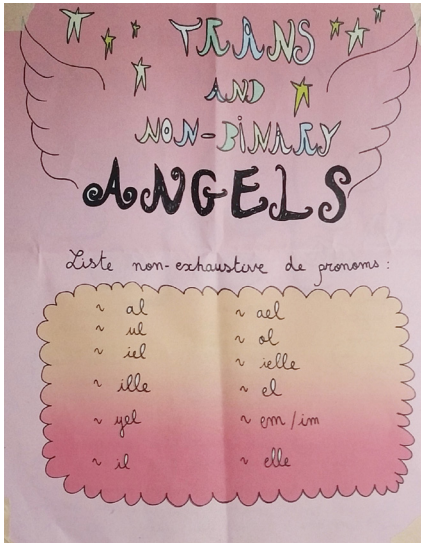 TRANS
AND
NON-BINARY
ANGELS
Liste non-exhaustive de pronoms :
~ al
~ ul
~ iel
~ ille
~ yel
~ il
~ ael
~ ol
~ ielle
~ el
~ em/im
~ elle